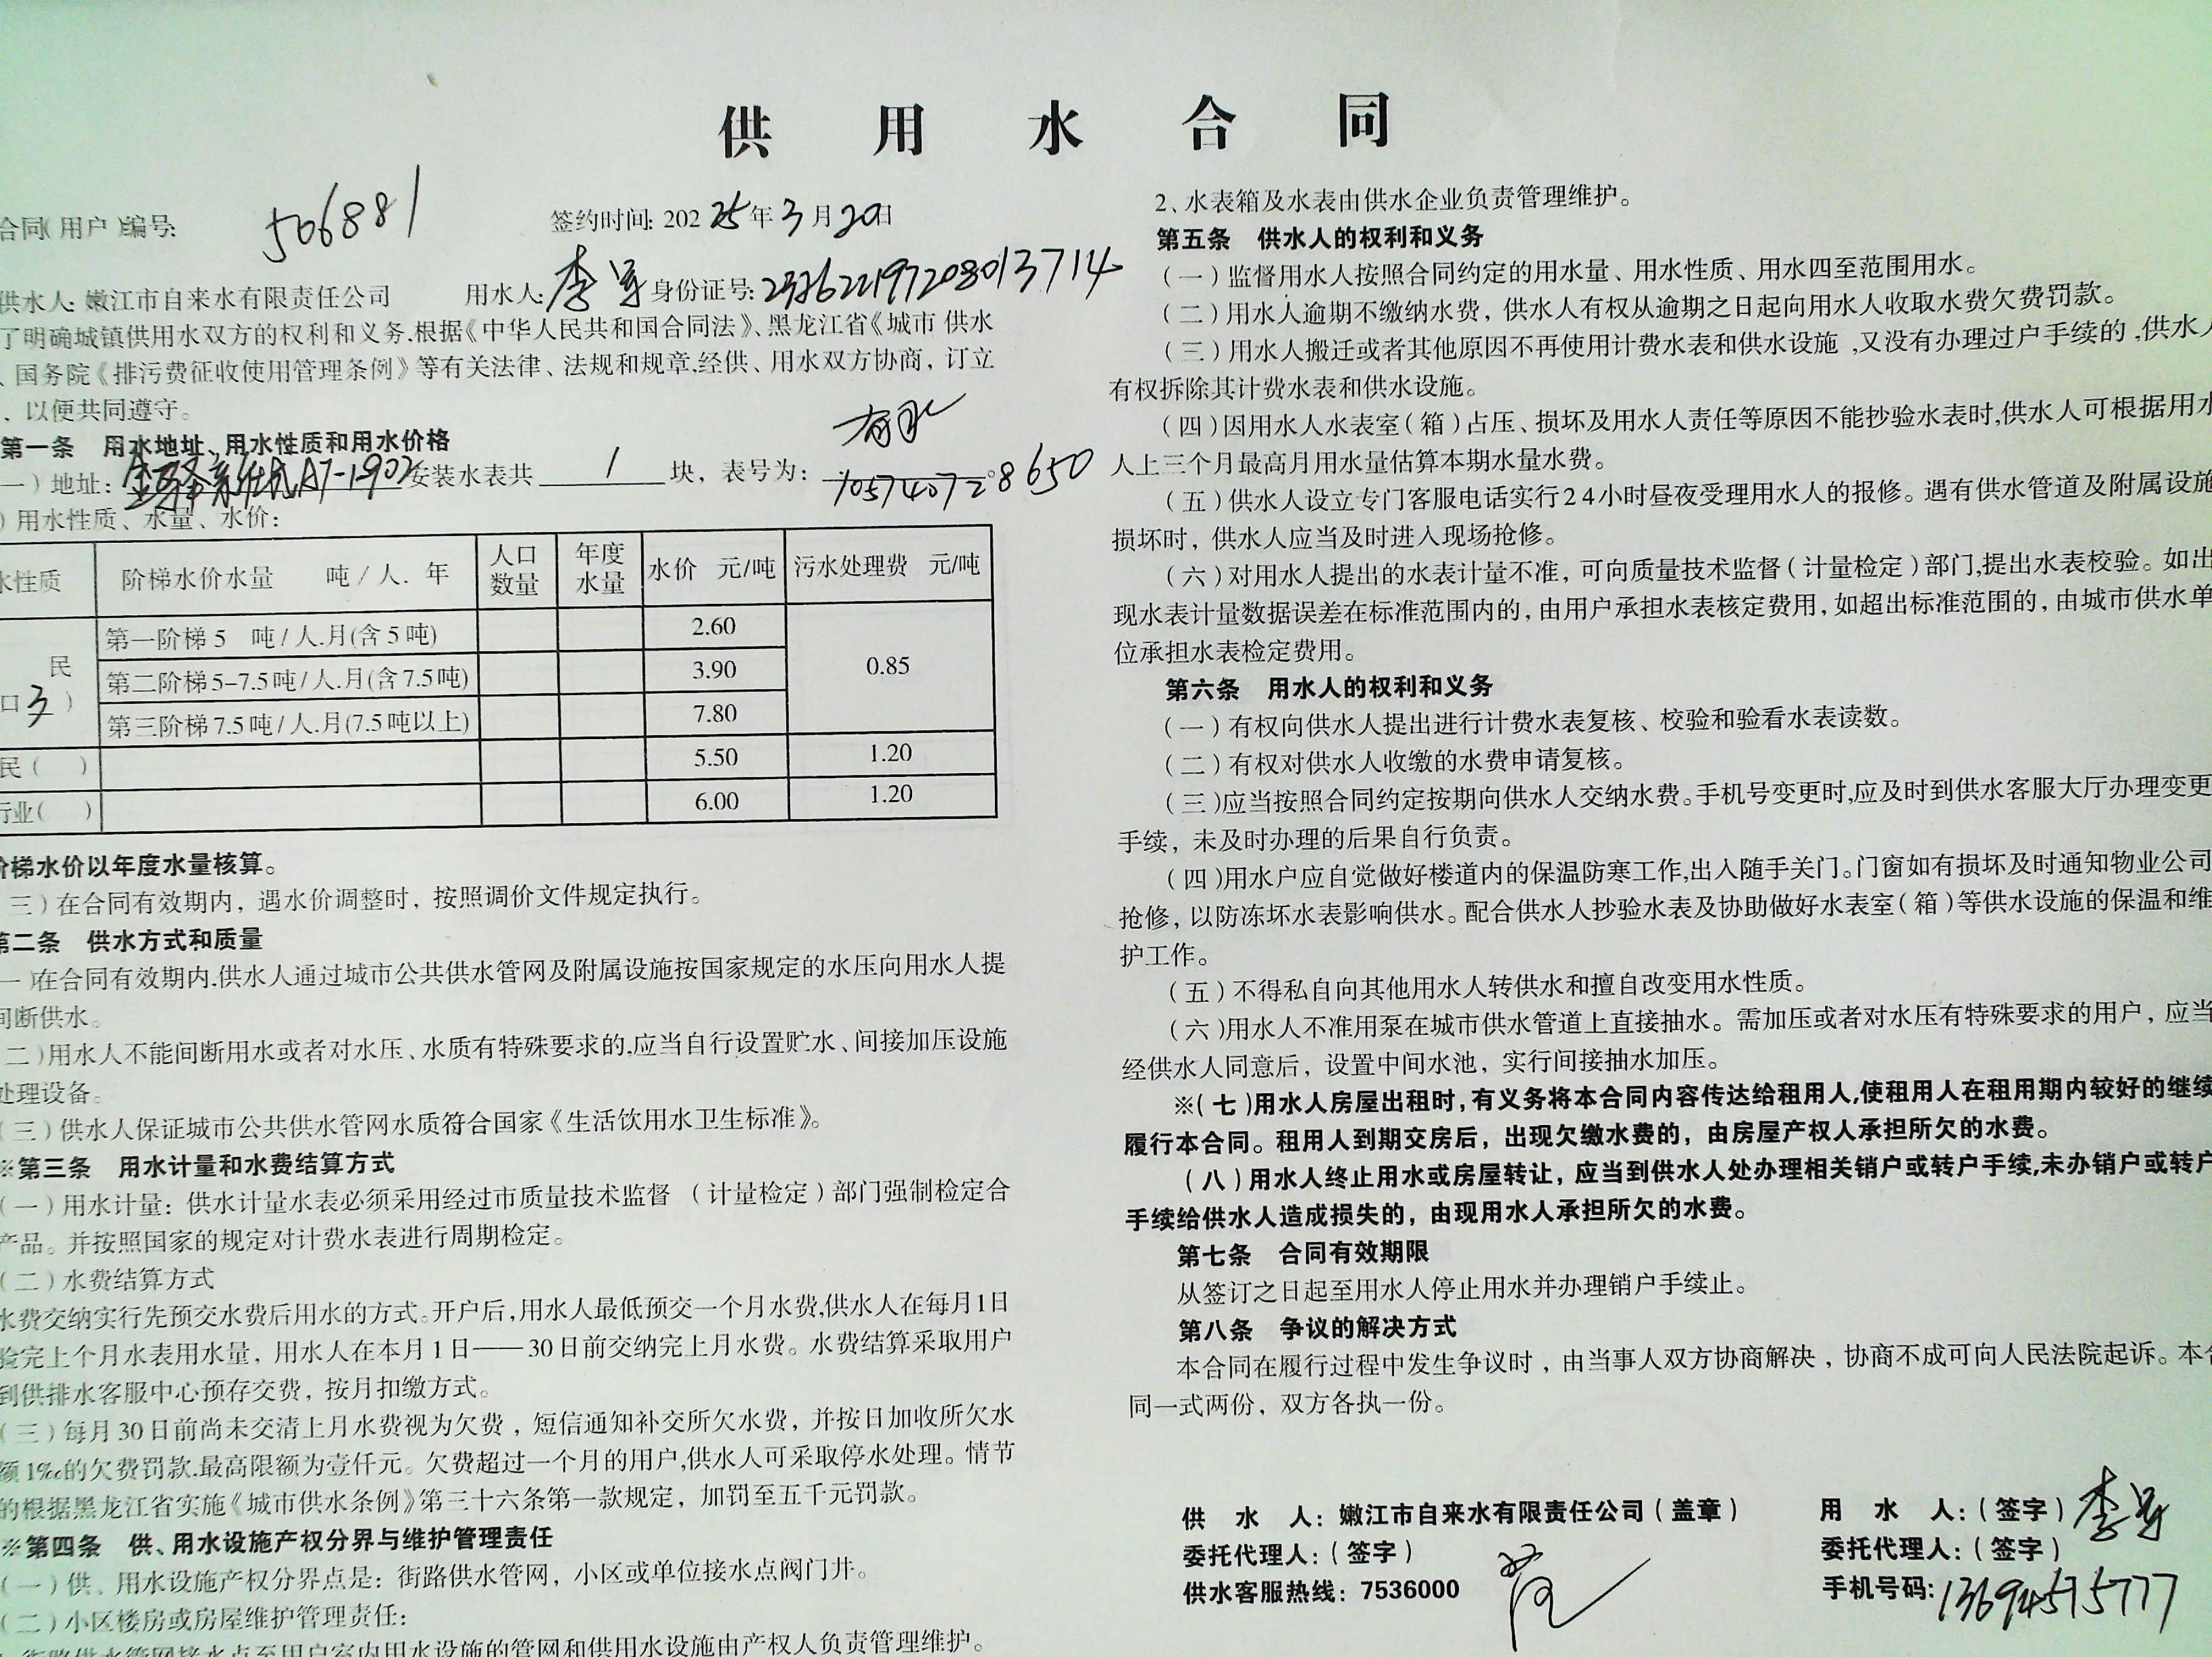 供 用 水 合 同
合同(用户)编号: 506881 签约时间: 202 25年3月20日
供水人: 嫩江市自来水有限责任公司 用水人: 李军 身份证号:
了明确城镇供用水双方的权利和义务,根据《中华人民共和国合同法》、黑龙江省《城市 供水
、国务院《排污费征收使用管理条例》等有关法律、法规和规章,经供、用水双方协商，订立
、以便共同遵守。
第一条 用水地址、用水性质和用水价格
一)地址: A7-1902 安装水表共 1 块，表号为:
)用水性质、水量、水价:
水性质 阶梯水价水量 吨/人.年 人口数量 年度水量 水价 元/吨 污水处理费 元/吨
民 第一阶梯5 吨/人.月(含5吨) 2.60 0.85
口3) 第二阶梯5-7.5吨/人.月(含7.5吨) 3.90
第三阶梯7.5吨/人.月(7.5吨以上) 7.80
民( ) 5.50 1.20
行业( ) 6.00 1.20
阶梯水价以年度水量核算。
三)在合同有效期内，遇水价调整时，按照调价文件规定执行。
第二条 供水方式和质量
一)在合同有效期内,供水人通过城市公共供水管网及附属设施按国家规定的水压向用水人提
间断供水。
二)用水人不能间断用水或者对水压、水质有特殊要求的,应当自行设置贮水、间接加压设施
处理设备。
(三)供水人保证城市公共供水管网水质符合国家《生活饮用水卫生标准》。
※第三条 用水计量和水费结算方式
(一)用水计量: 供水计量水表必须采用经过市质量技术监督 (计量检定)部门强制检定合
产品。并按照国家的规定对计费水表进行周期检定。
(二)水费结算方式
水费交纳实行先预交水费后用水的方式。开户后,用水人最低预交一个月水费,供水人在每月1日
验完上个月水表用水量，用水人在本月1日——30日前交纳完上月水费。水费结算采取用户
到供排水客服中心预存交费，按月扣缴方式。
(三)每月30日前尚未交清上月水费视为欠费，短信通知补交所欠水费，并按日加收所欠水
额1‰的欠费罚款,最高限额为壹仟元。欠费超过一个月的用户,供水人可采取停水处理。情节
的根据黑龙江省实施《城市供水条例》第三十六条第一款规定，加罚至五千元罚款。
※第四条 供、用水设施产权分界与维护管理责任
(一)供、用水设施产权分界点是: 街路供水管网，小区或单位接水点阀门井。
(二)小区楼房或房屋维护管理责任:
街路供水管网接水点至用户室内用水设施的管网和供用水设施由产权人负责管理维护。
2、水表箱及水表由供水企业负责管理维护。
第五条 供水人的权利和义务
(一)监督用水人按照合同约定的用水量、用水性质、用水四至范围用水。
(二)用水人逾期不缴纳水费，供水人有权从逾期之日起向用水人收取水费欠费罚款。
(三)用水人搬迁或者其他原因不再使用计费水表和供水设施,又没有办理过户手续的,供水人
有权拆除其计费水表和供水设施。
(四)因用水人水表室(箱)占压、损坏及用水人责任等原因不能抄验水表时,供水人可根据用水
人上三个月最高月用水量估算本期水量水费。
(五)供水人设立专门客服电话实行24小时昼夜受理用水人的报修。遇有供水管道及附属设施
损坏时，供水人应当及时进入现场抢修。
(六)对用水人提出的水表计量不准，可向质量技术监督(计量检定)部门,提出水表校验。如出
现水表计量数据误差在标准范围内的，由用户承担水表核定费用，如超出标准范围的，由城市供水单
位承担水表检定费用。
第六条 用水人的权利和义务
(一)有权向供水人提出进行计费水表复核、校验和验看水表读数。
(二)有权对供水人收缴的水费申请复核。
(三)应当按照合同约定按期向供水人交纳水费。手机号变更时,应及时到供水客服大厅办理变更
手续，未及时办理的后果自行负责。
(四)用水户应自觉做好楼道内的保温防寒工作,出入随手关门。门窗如有损坏及时通知物业公司
抢修，以防冻坏水表影响供水。配合供水人抄验水表及协助做好水表室(箱)等供水设施的保温和维
护工作。
(五)不得私自向其他用水人转供水和擅自改变用水性质。
(六)用水人不准用泵在城市供水管道上直接抽水。需加压或者对水压有特殊要求的用户，应当
经供水人同意后，设置中间水池，实行间接抽水加压。
※(七)用水人房屋出租时,有义务将本合同内容传达给租用人,使租用人在租用期内较好的继续
履行本合同。租用人到期交房后，出现欠缴水费的，由房屋产权人承担所欠的水费。
(八)用水人终止用水或房屋转让，应当到供水人处办理相关销户或转户手续,未办销户或转户
手续给供水人造成损失的，由现用水人承担所欠的水费。
第七条 合同有效期限
从签订之日起至用水人停止用水并办理销户手续止。
第八条 争议的解决方式
本合同在履行过程中发生争议时，由当事人双方协商解决，协商不成可向人民法院起诉。本合
同一式两份，双方各执一份。
供 水 人: 嫩江市自来水有限责任公司(盖章) 用 水 人:(签字) 李军
委托代理人:(签字) 委托代理人:(签字)
供水客服热线: 7536000 手机号码: 13694575777